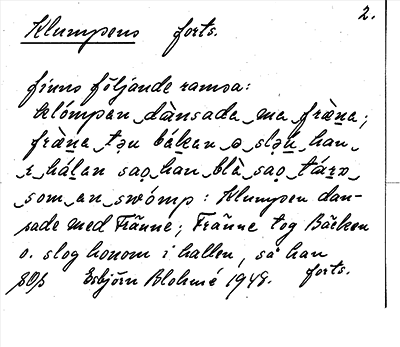 2.
Klumpens forts.
finns följande ramsa:
klómpan dànsada ma fræ̀na;
fræ̀na tən bákan ə slən han
ı hálan sao han blà sao tárə
som an swómp: Klumpen dan-
sade med Fränne; Fränne tog Bäcken
o. slog honom i hallen, så han
SOP Esbjörn Blohmé 1948. forts.